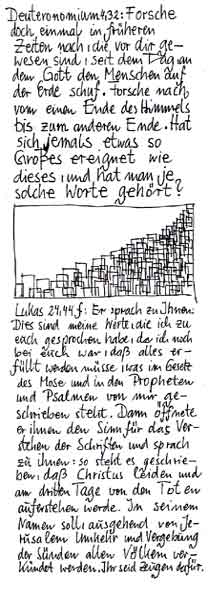 Deuteronomium 4,32: Forsche
doch einmal in früheren
Zeiten nach, die vor dir ge-
wesen sind, seit dem Tag, an
dem Gott den Menschen auf
der Erde schuf. Forsche nach
vom einen Ende des Himmels
bis zum anderen Ende. Hat
sich jemals etwas so
Großes ereignet wie
dieses, und hat man je
solche Worte gehört?
Lukas 24,44 f: Er sprach zu Ihnen:
Dies sind meine Worte, die ich zu
euch gesprochen habe, da ich noch
bei euch war, daß alles er-
füllt werden müsse, was im Gesetz
des Mose und in den Propheten
und Psalmen von mir ge-
schrieben steht. Dann öffnete
er ihnen den Sinn für das Ver-
stehen der Schriften und sprach
zu ihnen: so steht es geschrie-
ben, daß Christus leiden und
am dritten Tage von den Toten
auferstehen werde. In seinem
Namen soll, ausgehend von Je-
rusalem Umkehr und Vergebung
der Sünden allen Völkern ver-
kündet werden. Ihr seid Zeugen dafür.